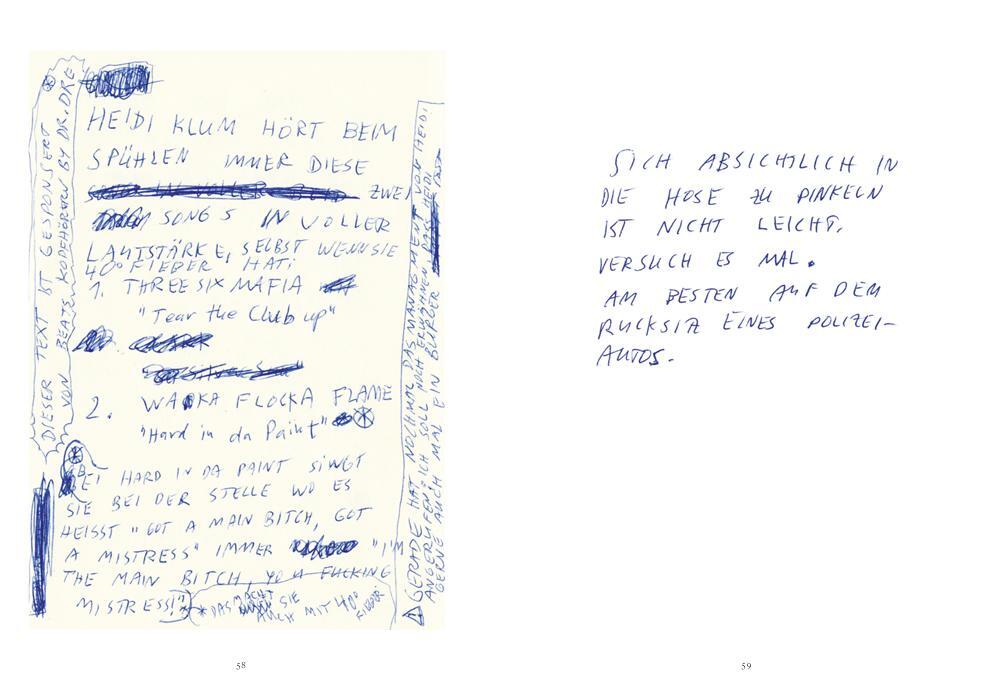 HEIDI KLUM HÖRT BEIM
SPÜHLEN IMMER DIESE
ZWEI
SONGS IN VOLLER
LAUTSTÄRKE, SELBST WENN SIE
40° FIEBER HAT:
1. THREE SIX MAFIA
"Tear the Club up"
2. WAKA FLOCKA FLAME
"Hard in da Paint" *
* BEI HARD IN DA PAINT SINGT
SIE BEI DER STELLE WO ES
HEISST "GOT A MAIN BITCH, GOT
A MISTRESS" IMMER "I'M
THE MAIN BITCH, YOU FUCKING
MISTRESS!"
* DAS MACHT
SIE
AUCH MIT 40°
FIEBER
DIESER TEXT IST GESPONSERT
VON BEATS KOPFHÖRERN BY DR. DRE
GERADE HAT NOCHMAL DAS MANAGMENT VON HEIDI
ANGERUFEN, ICH SOLL NOCH ERWÄHNEN DASS HEIDI
GERNE AUCH MAL EIN BURGER ISST
58
SICH ABSICHTLICH IN
DIE HOSE ZU PINKELN
IST NICHT LEICHT.
VERSUCH ES MAL.
AM BESTEN AUF DEM
RÜCKSITZ EINES POLIZEI-
AUTOS.
59